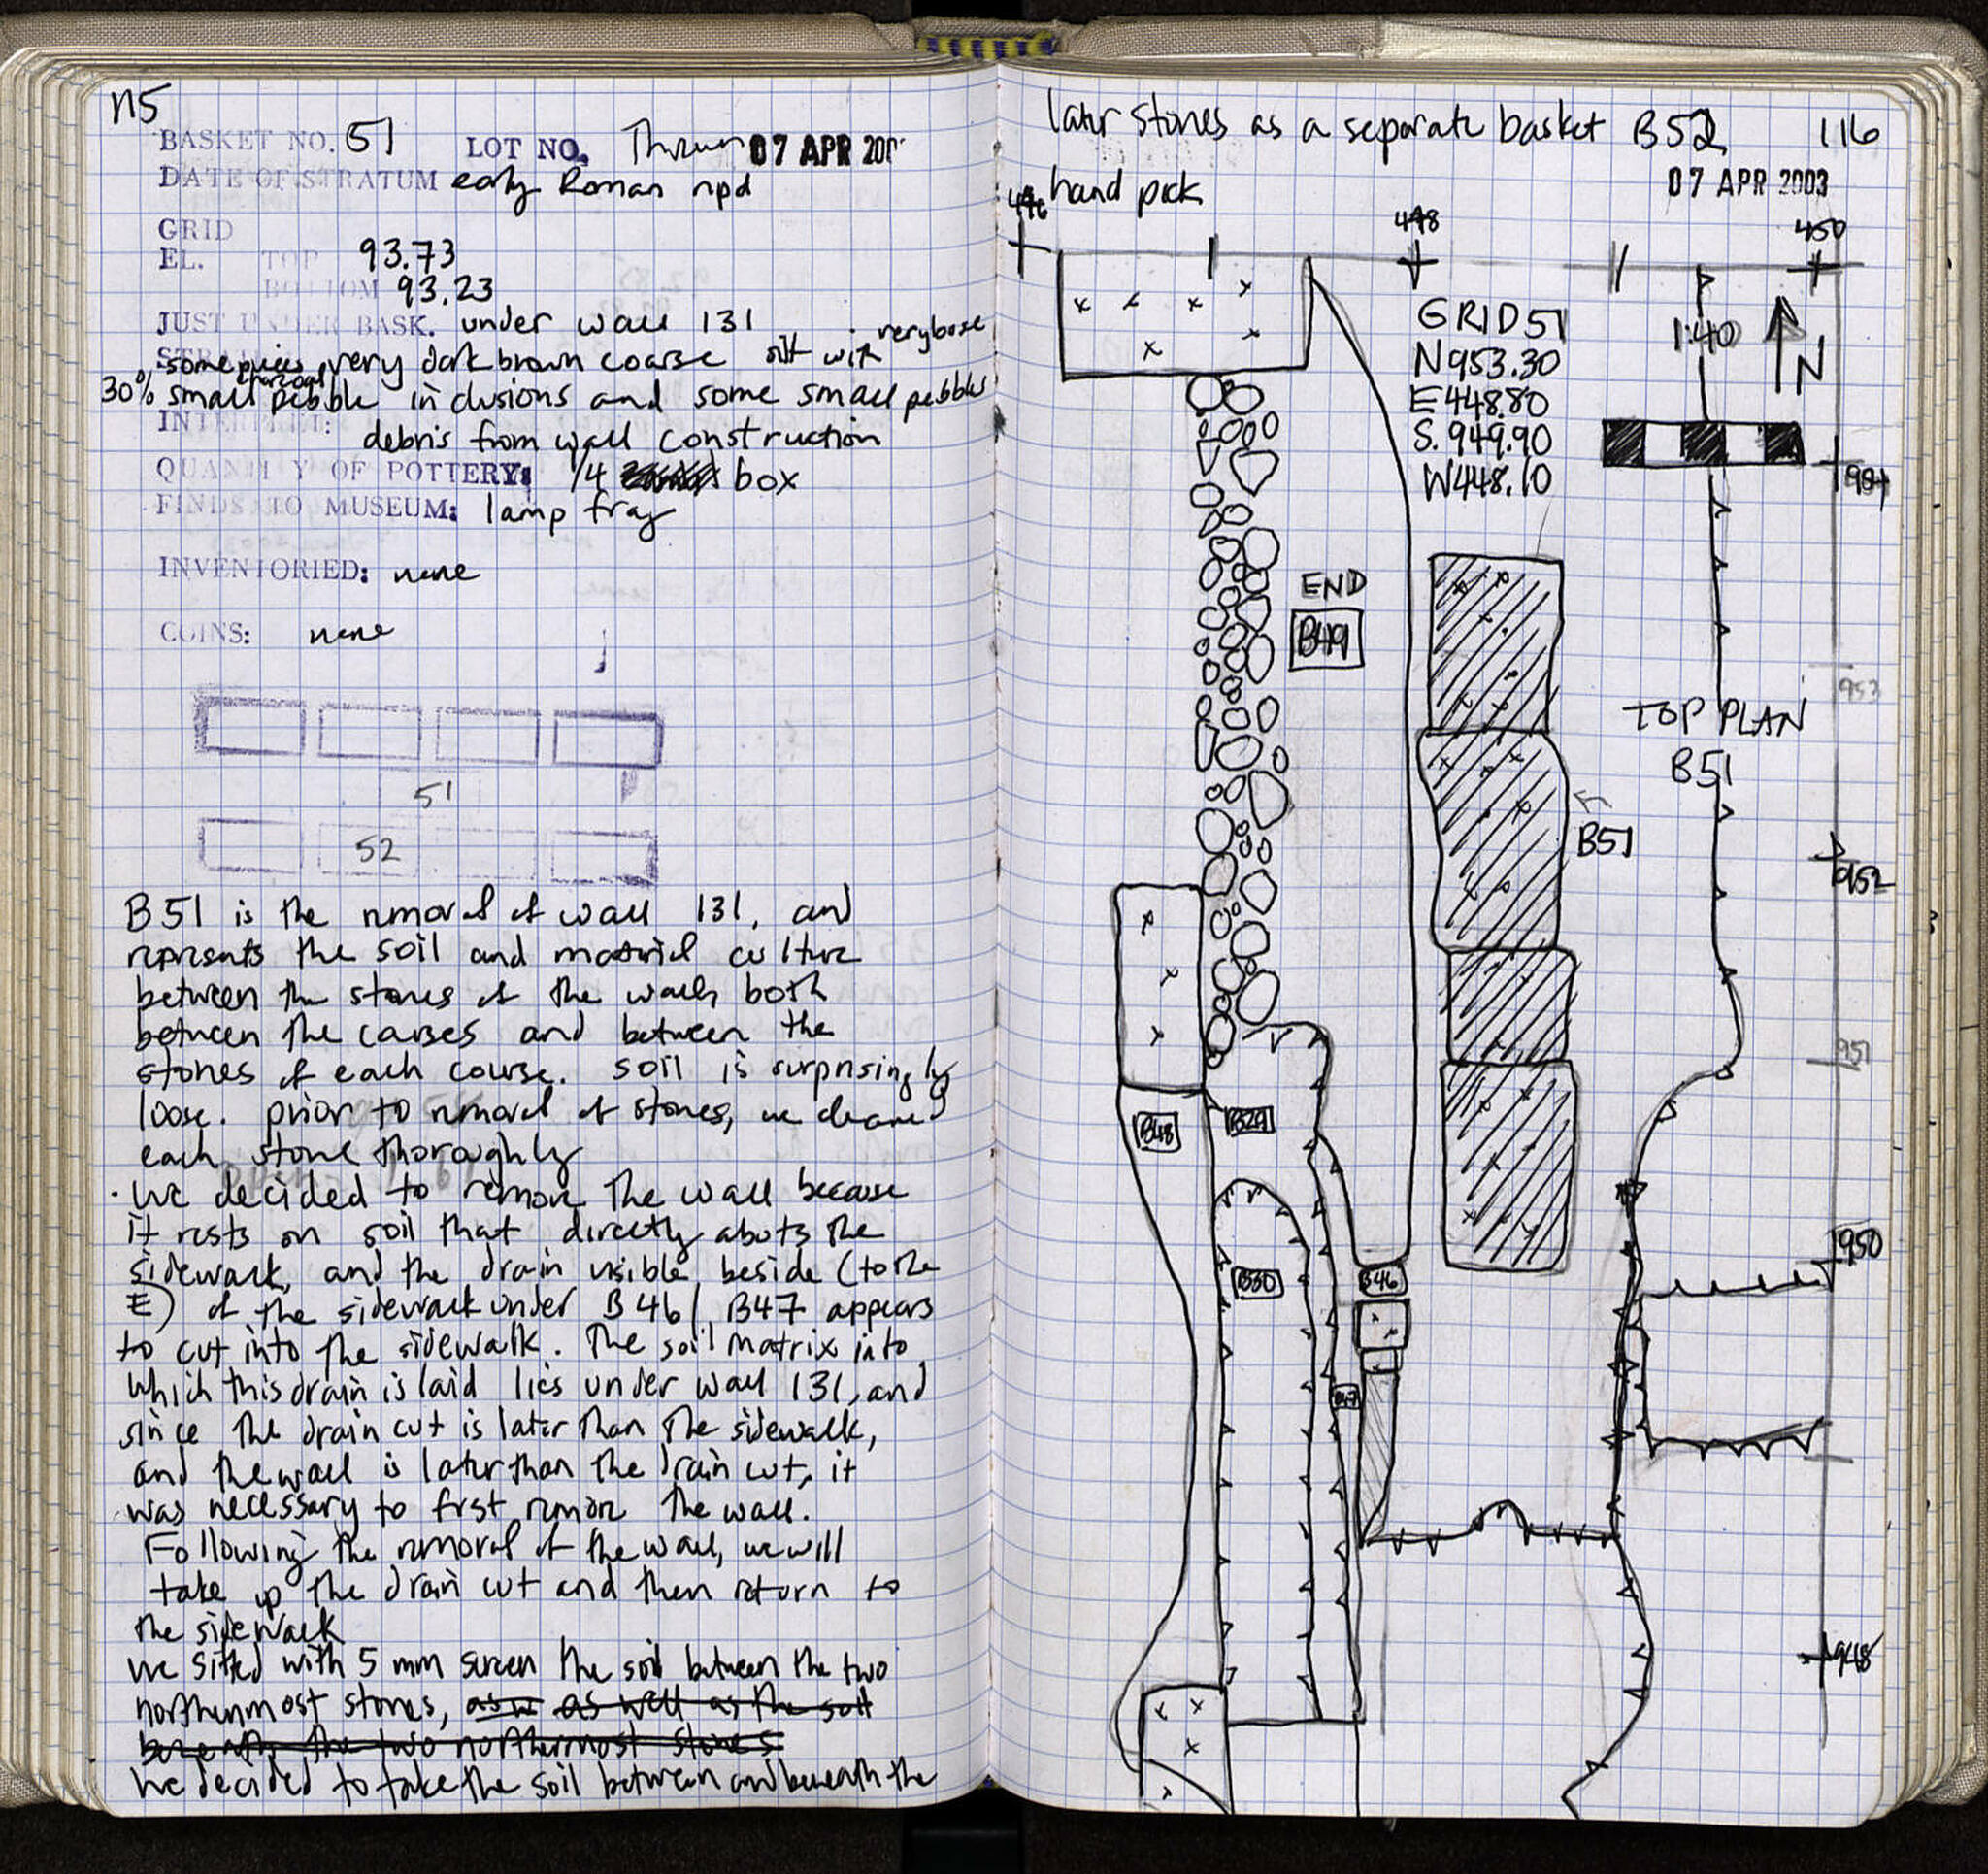 115
BASKET NO. 51 LOT NO. 07 APR 200
DATE OF STRATUM early Roman npd
GRID
EL. TOP 93.73
BOTTOM 93.23
JUST UNDER BASK. under wall 131
some pieces charcoal very dark brown coarse silt with very loose
30% small pebble inclusions and some small pebbles
debris from wall construction
QUANTITY OF POTTERY: 1/4 box
FINDS TO MUSEUM: lamp frag
INVENTORIED: none
COINS: none
51
52
B51 is the removal of wall 131, and
represents the soil and material culture
between the stones of the wall, both
between the courses and between the
stones of each course. Soil is surprisingly
loose. prior to removal of stones, we cleaned
each stone thoroughly
· We decided to remove the wall because
it rests on soil that directly abuts the
sidewalk, and the drain visible beside (to the
E) of the sidewalk under B46/B47 appears
to cut into the sidewalk. The soil matrix into
which this drain is laid lies under wall 131, and
since the drain cut is later than the sidewalk,
and the wall is later than the drain cut, it
was necessary to first remove the wall.
Following the removal of the wall, we will
take up the drain cut and then return to
the sidewalk
We sifted with 5 mm screen the soil between the two
northernmost stones, as w as well as the soil
beneath the two northernmost stones
We decided to take the soil between and beneath the
later stones as a separate basket B52 116
hand pick
07 APR 2003
446 448 450
GRID 51
N953.30
E448.80
S.949.90
W448.10
1:40
N
954
END
B49
953
TOP PLAN
B51
B51
952
951
B48
B29
950
B30
B46
B47
948